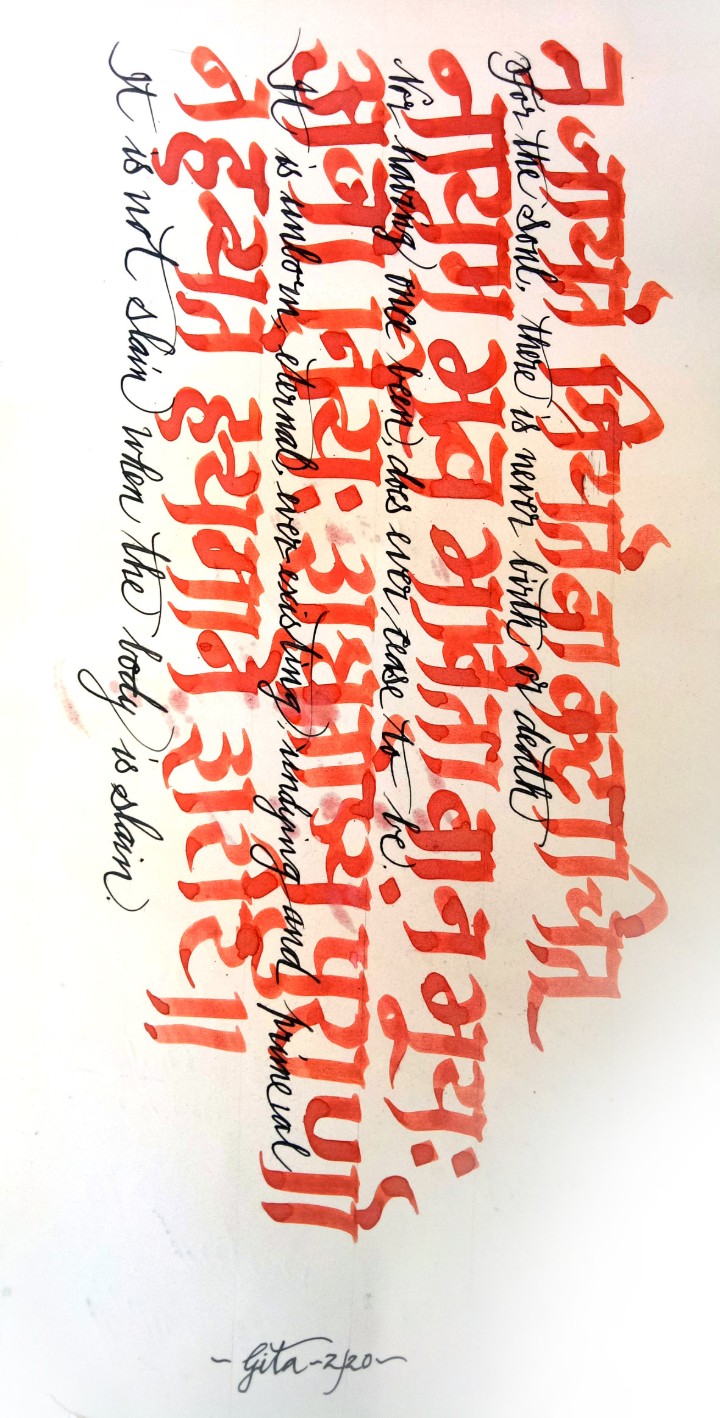 न जायते म्रियते वा कदाचित्
For the soul, there is never birth or death
नायम् भूत्वा भविता वा न भूय:
Nor having once been, does ever cease to be.
अजो नित्य: शाश्वतोऽयं पुराणो
It is unborn, eternal, ever-existing, undying and primeval
न हन्यते हन्यमाने शरीरे॥
It is not slain when the body is slain.
~ Gita ~ 2/20 ~